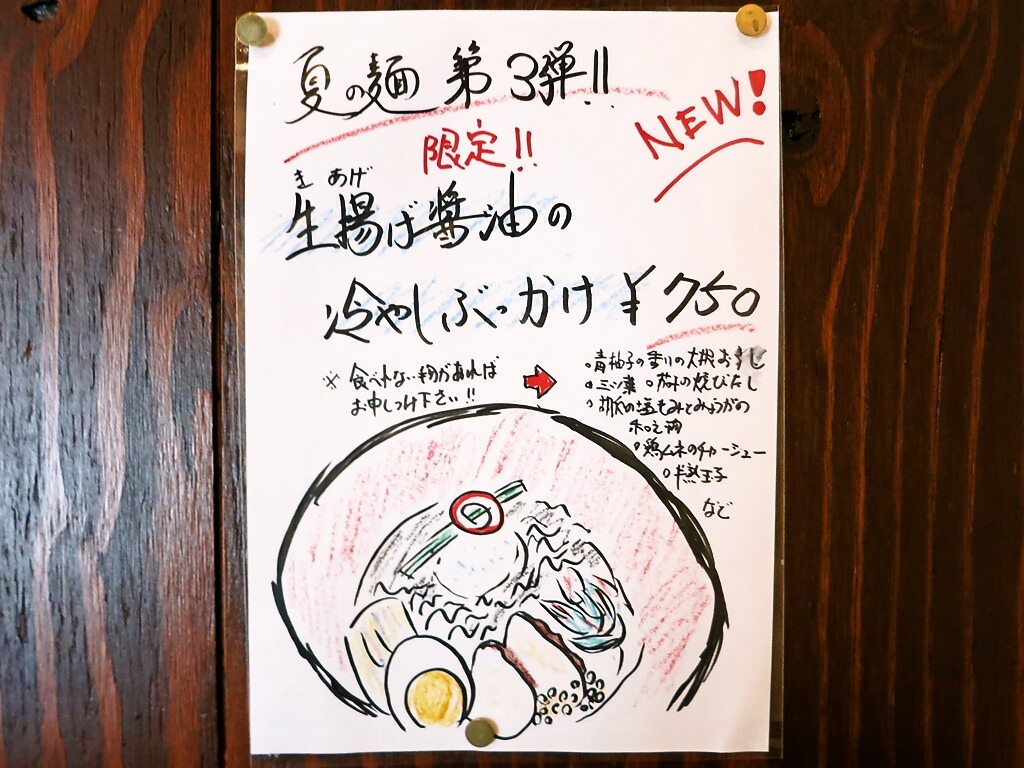 夏の麺 第3弾!!
NEW!
限定!!
きあげ
生揚げ醤油の
冷やしぶっかけ ¥750
※食べれない物があれば
お申しつけ下さい!!
・青柚子の香りの大根おろし
・三ツ葉 ・茄子の焼びたし
・胡瓜の塩もみとみょうがの
和え物
・鶏ムネのチャーシュー
・半熟玉子
など